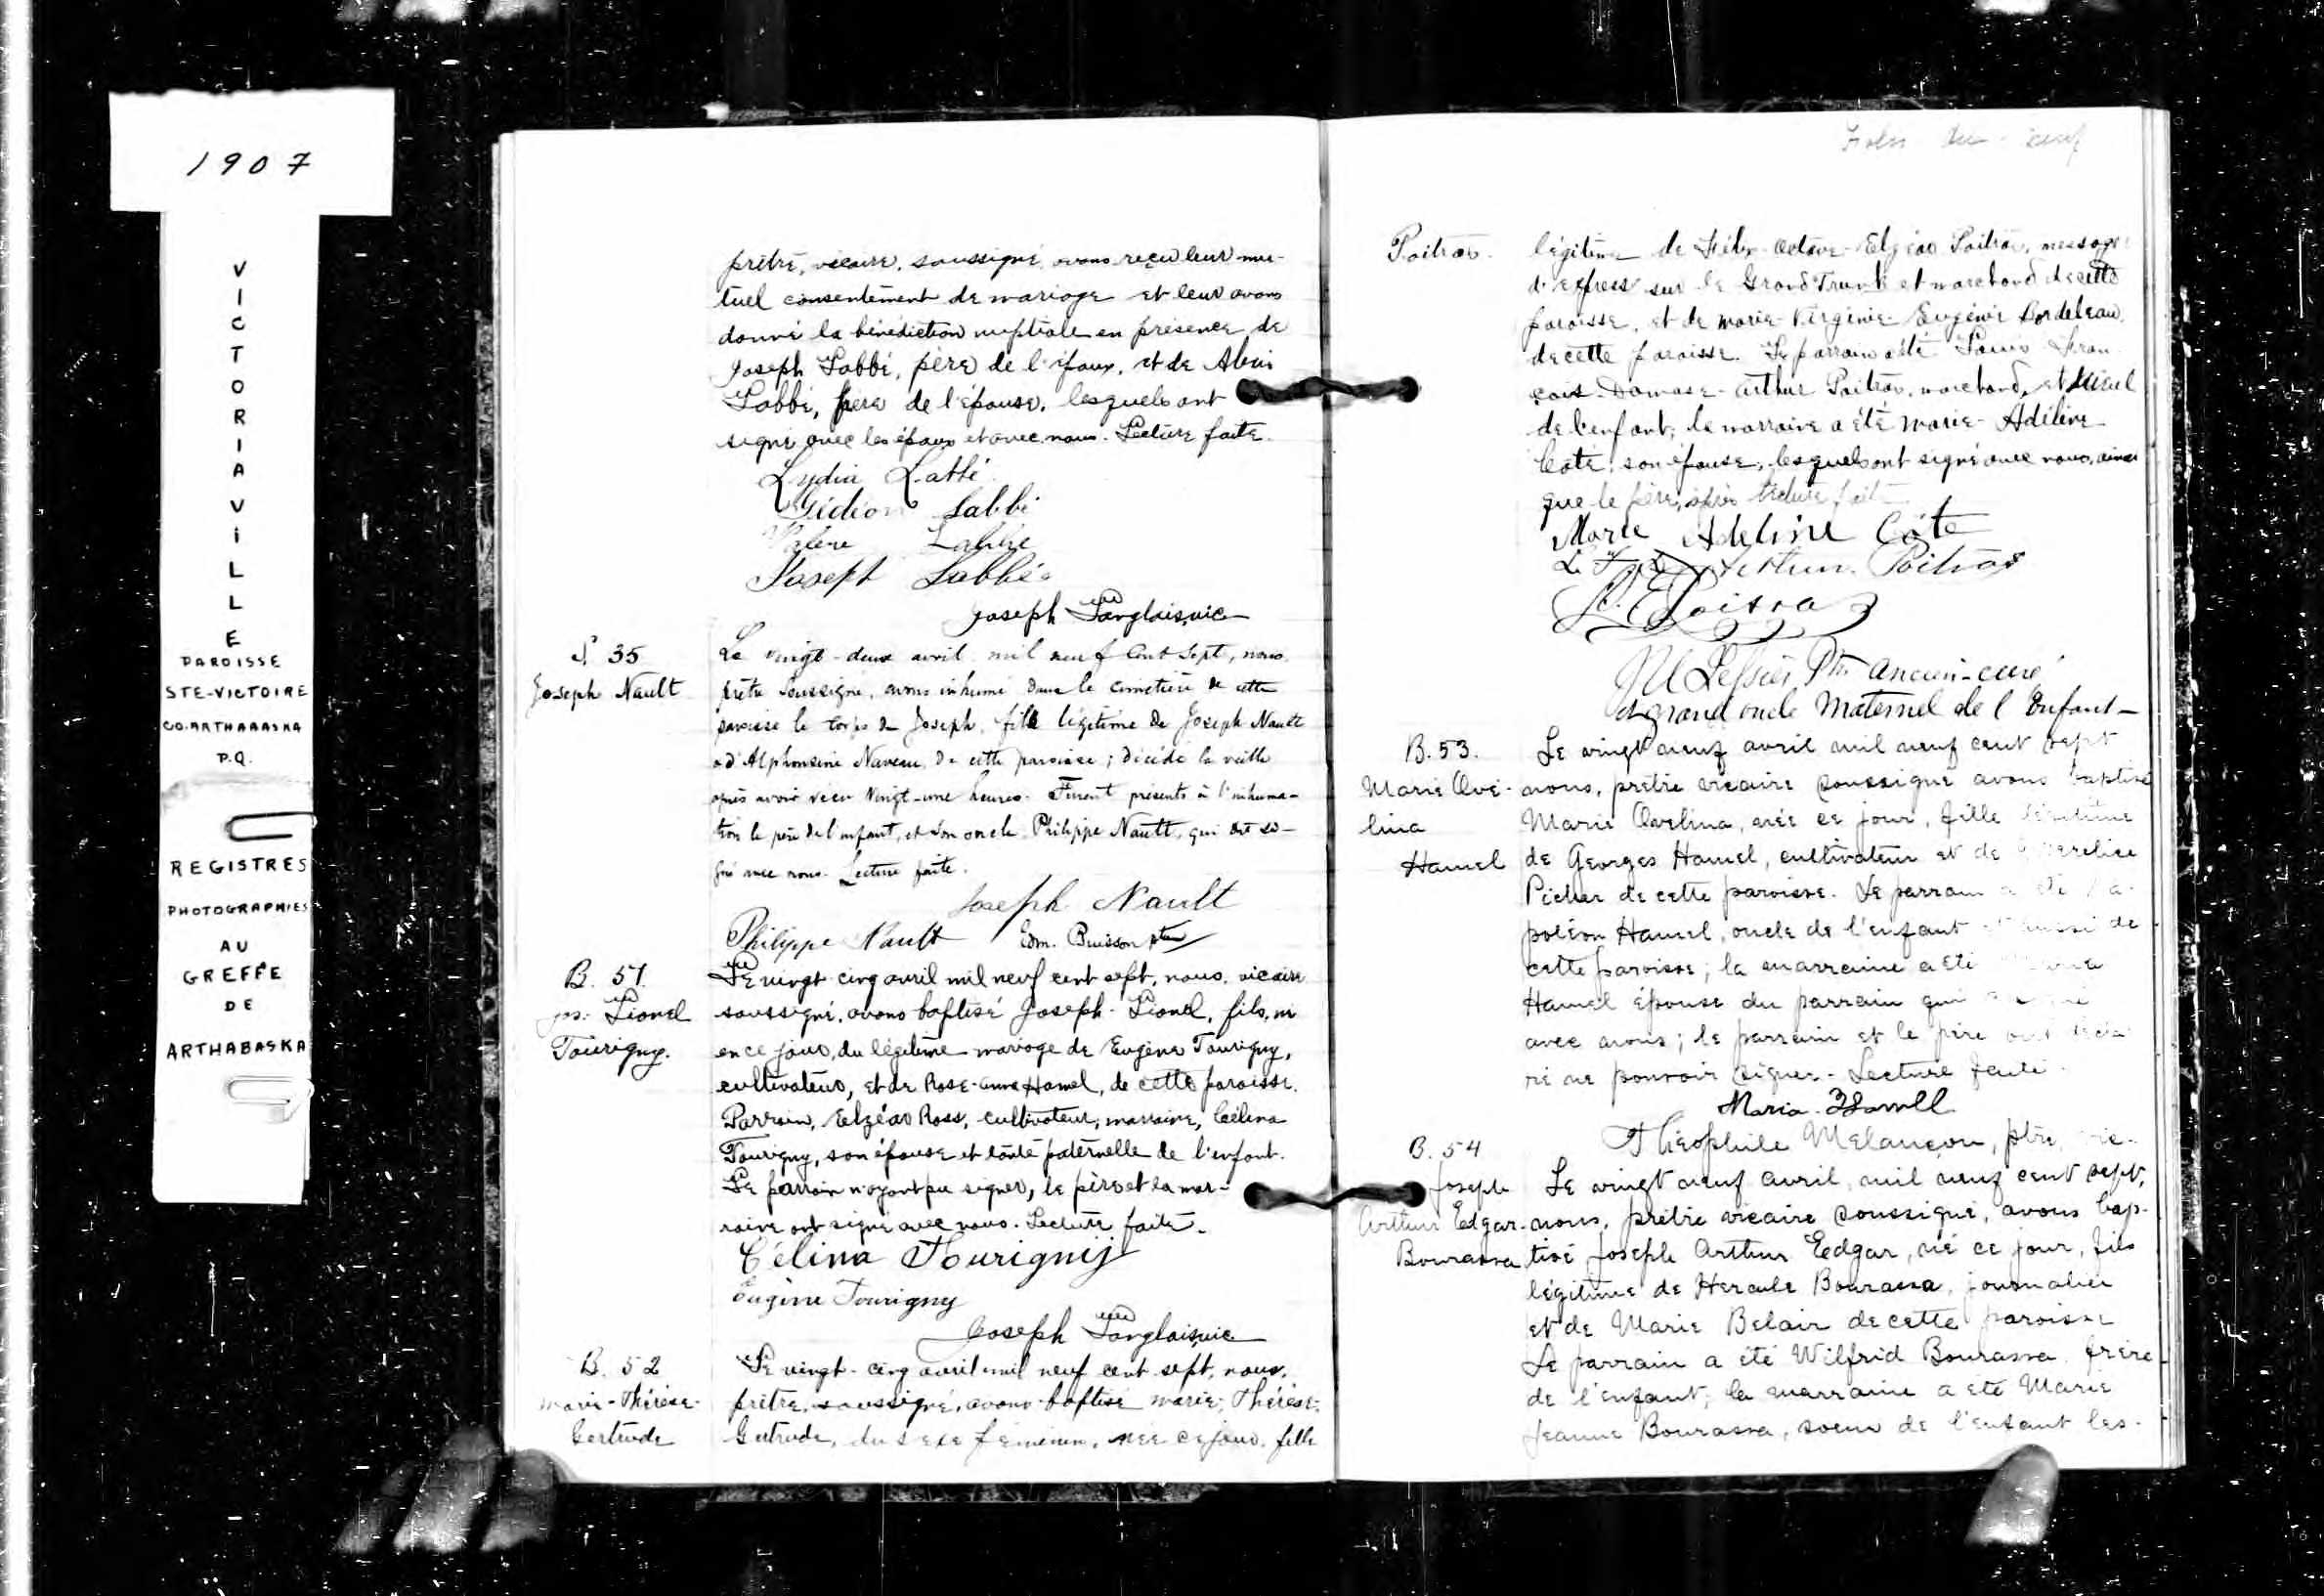 1907
VICTORIAVILLE
PAROISSE
STE-VICTOIRE
CO. ARTHABASKA
P.Q.
REGISTRES
PHOTOGRAPHIES
AU
GREFFE
DE
ARTHABASKA
prêtre, vicaire, soussigné, avons reçu leur mu-
tuel consentement de mariage et leur avons
donné la bénédiction nuptiale en présence de
Joseph Labbé, père de l'époux, et de
Labbé, père de l'épouse, lesquels ont
signé avec les époux et avec nous. Lecture faite.
Lydia Labbé
Gédéon Labbé
Labbé
Joseph Labbé
Joseph Langlais, vic
S 35
Joseph Nault
Le vingt-deux avril mil neuf cent sept, nous,
prêtre soussigné, avons inhumé dans le cimetière de cette
paroisse le corps de Joseph, fils légitime de Joseph Nault
et d'Alphonsine Naveau, de cette paroisse; décédé la veille
après avoir vécu vingt-une heures. Furent présents à l'inhuma-
tion le père de l'enfant, et son oncle Philippe Nault, qui ont si-
gné avec nous. Lecture faite.
Joseph Nault
Philippe Nault Edm. Buisson ptre
B. 51.
Jos. Lionel
Tourigny.
Le vingt-cinq avril mil neuf cent sept, nous, vicaire
soussigné, avons baptisé Joseph-Lionel, fils, né
en ce jour, du légitime mariage de Eugène Tourigny,
cultivateur, et de Rose-Anna Hamel, de cette paroisse.
Parrain, Elzéar Ross, cultivateur; marraine, Célina
Tourigny, son épouse et tante paternelle de l'enfant.
Le parrain n'ayant pu signer, le père et la mar-
raine ont signé avec nous. Lecture faite.
Célina Tourigny
Eugène Tourigny
Joseph Langlais, vic
B. 52
Marie-Thérèse-
Gertrude
Le vingt-cinq avril mil neuf cent sept, nous,
prêtre, soussigné, avons baptisé Marie-Thérèse-
Gertrude, du sexe féminin, née ce jour, fille
Poitras.
légitime de Octave-Elzéar Poitras, messager
d'express sur le Grand Trunk et marchand de cette
paroisse, et de Marie-Virginie-Eugénie Bordeleau,
de cette paroisse. Le parrain a été Louis Fran-
çois-Damase-Arthur Poitras, marchand, et aïeul
de l'enfant; la marraine a été Marie-Adéline
Côté, son épouse, lesquels ont signé avec nous, ainsi
que le père, après lecture faite
Marie Adeline Côté
Arthur Poitras
E Poitras
Ptre ancien-curé
et grand oncle Maternel de l'Enfant
B. 53.
Marie Ave-
lina
Hamel
Le vingt neuf avril mil neuf cent sept
nous, prêtre vicaire soussigné avons baptisé
Marie Avelina, née ce jour, fille légitime
de Georges Hamel, cultivateur et de
Picher de cette paroisse. Le parrain a été Na-
poléon Hamel, oncle de l'enfant et aussi de
cette paroisse; la marraine a été Maria
Hamel épouse du parrain qui a signé
avec nous; le parrain et le père ont décla-
ré ne pouvoir signer. Lecture faite.
Maria Hamell
Théophile Melançon, ptre, vic.
B. 54
Joseph
Arthur Edgar
Bourassa
Le vingt neuf avril, mil neuf cent sept,
nous, prêtre vicaire soussigné, avons bap-
tisé Joseph Arthur Edgar, né ce jour, fils
légitime de Hercule Bourassa, journalier
et de Marie Belair de cette paroisse
Le parrain a été Wilfrid Bourassa, frère
de l'enfant; la marraine a été Marie
Jeanne Bourassa, soeur de l'enfant les-